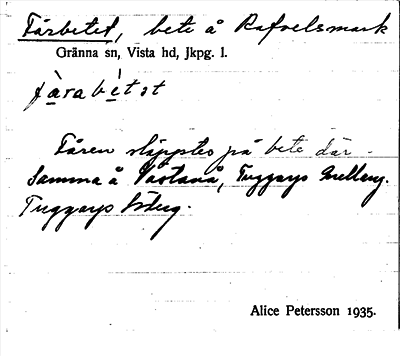 Fårbetet, bete å Rafvelsmark
Gränna sn, Vista hd, Jkpg. l.
fàrabètət
Fåren släpptes på bete där.
Samma å Västanå, Tuggarps Mellang.
Tuggarps Österg.
Alice Petersson 1935.